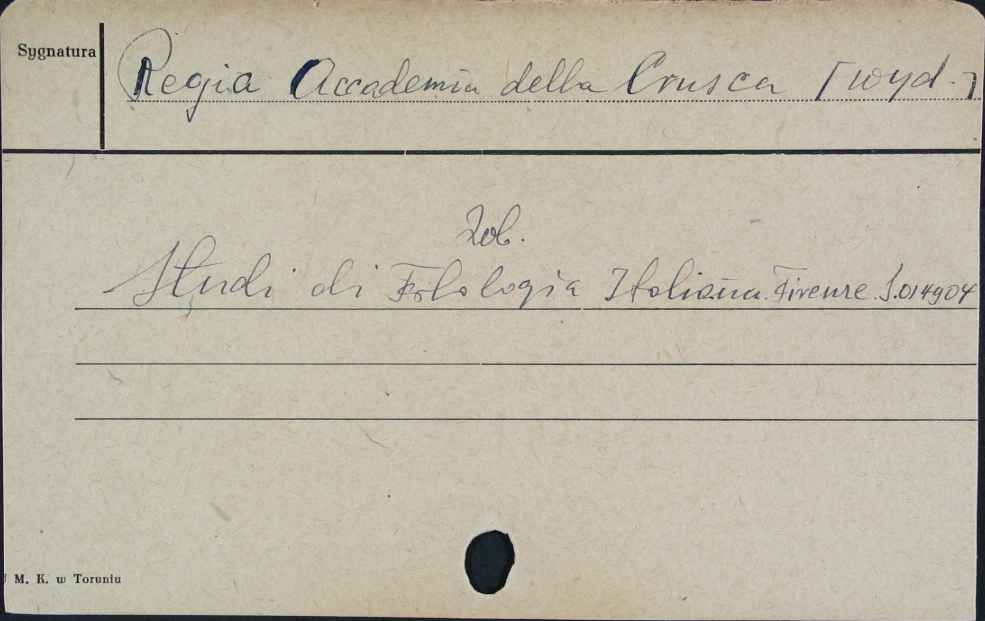 Sygnatura
Regia Accademia della Crusca [wyd.]
Zob.
Studi di Filologia Italiana. Firenze. S.014904
M. K. w Toruniu